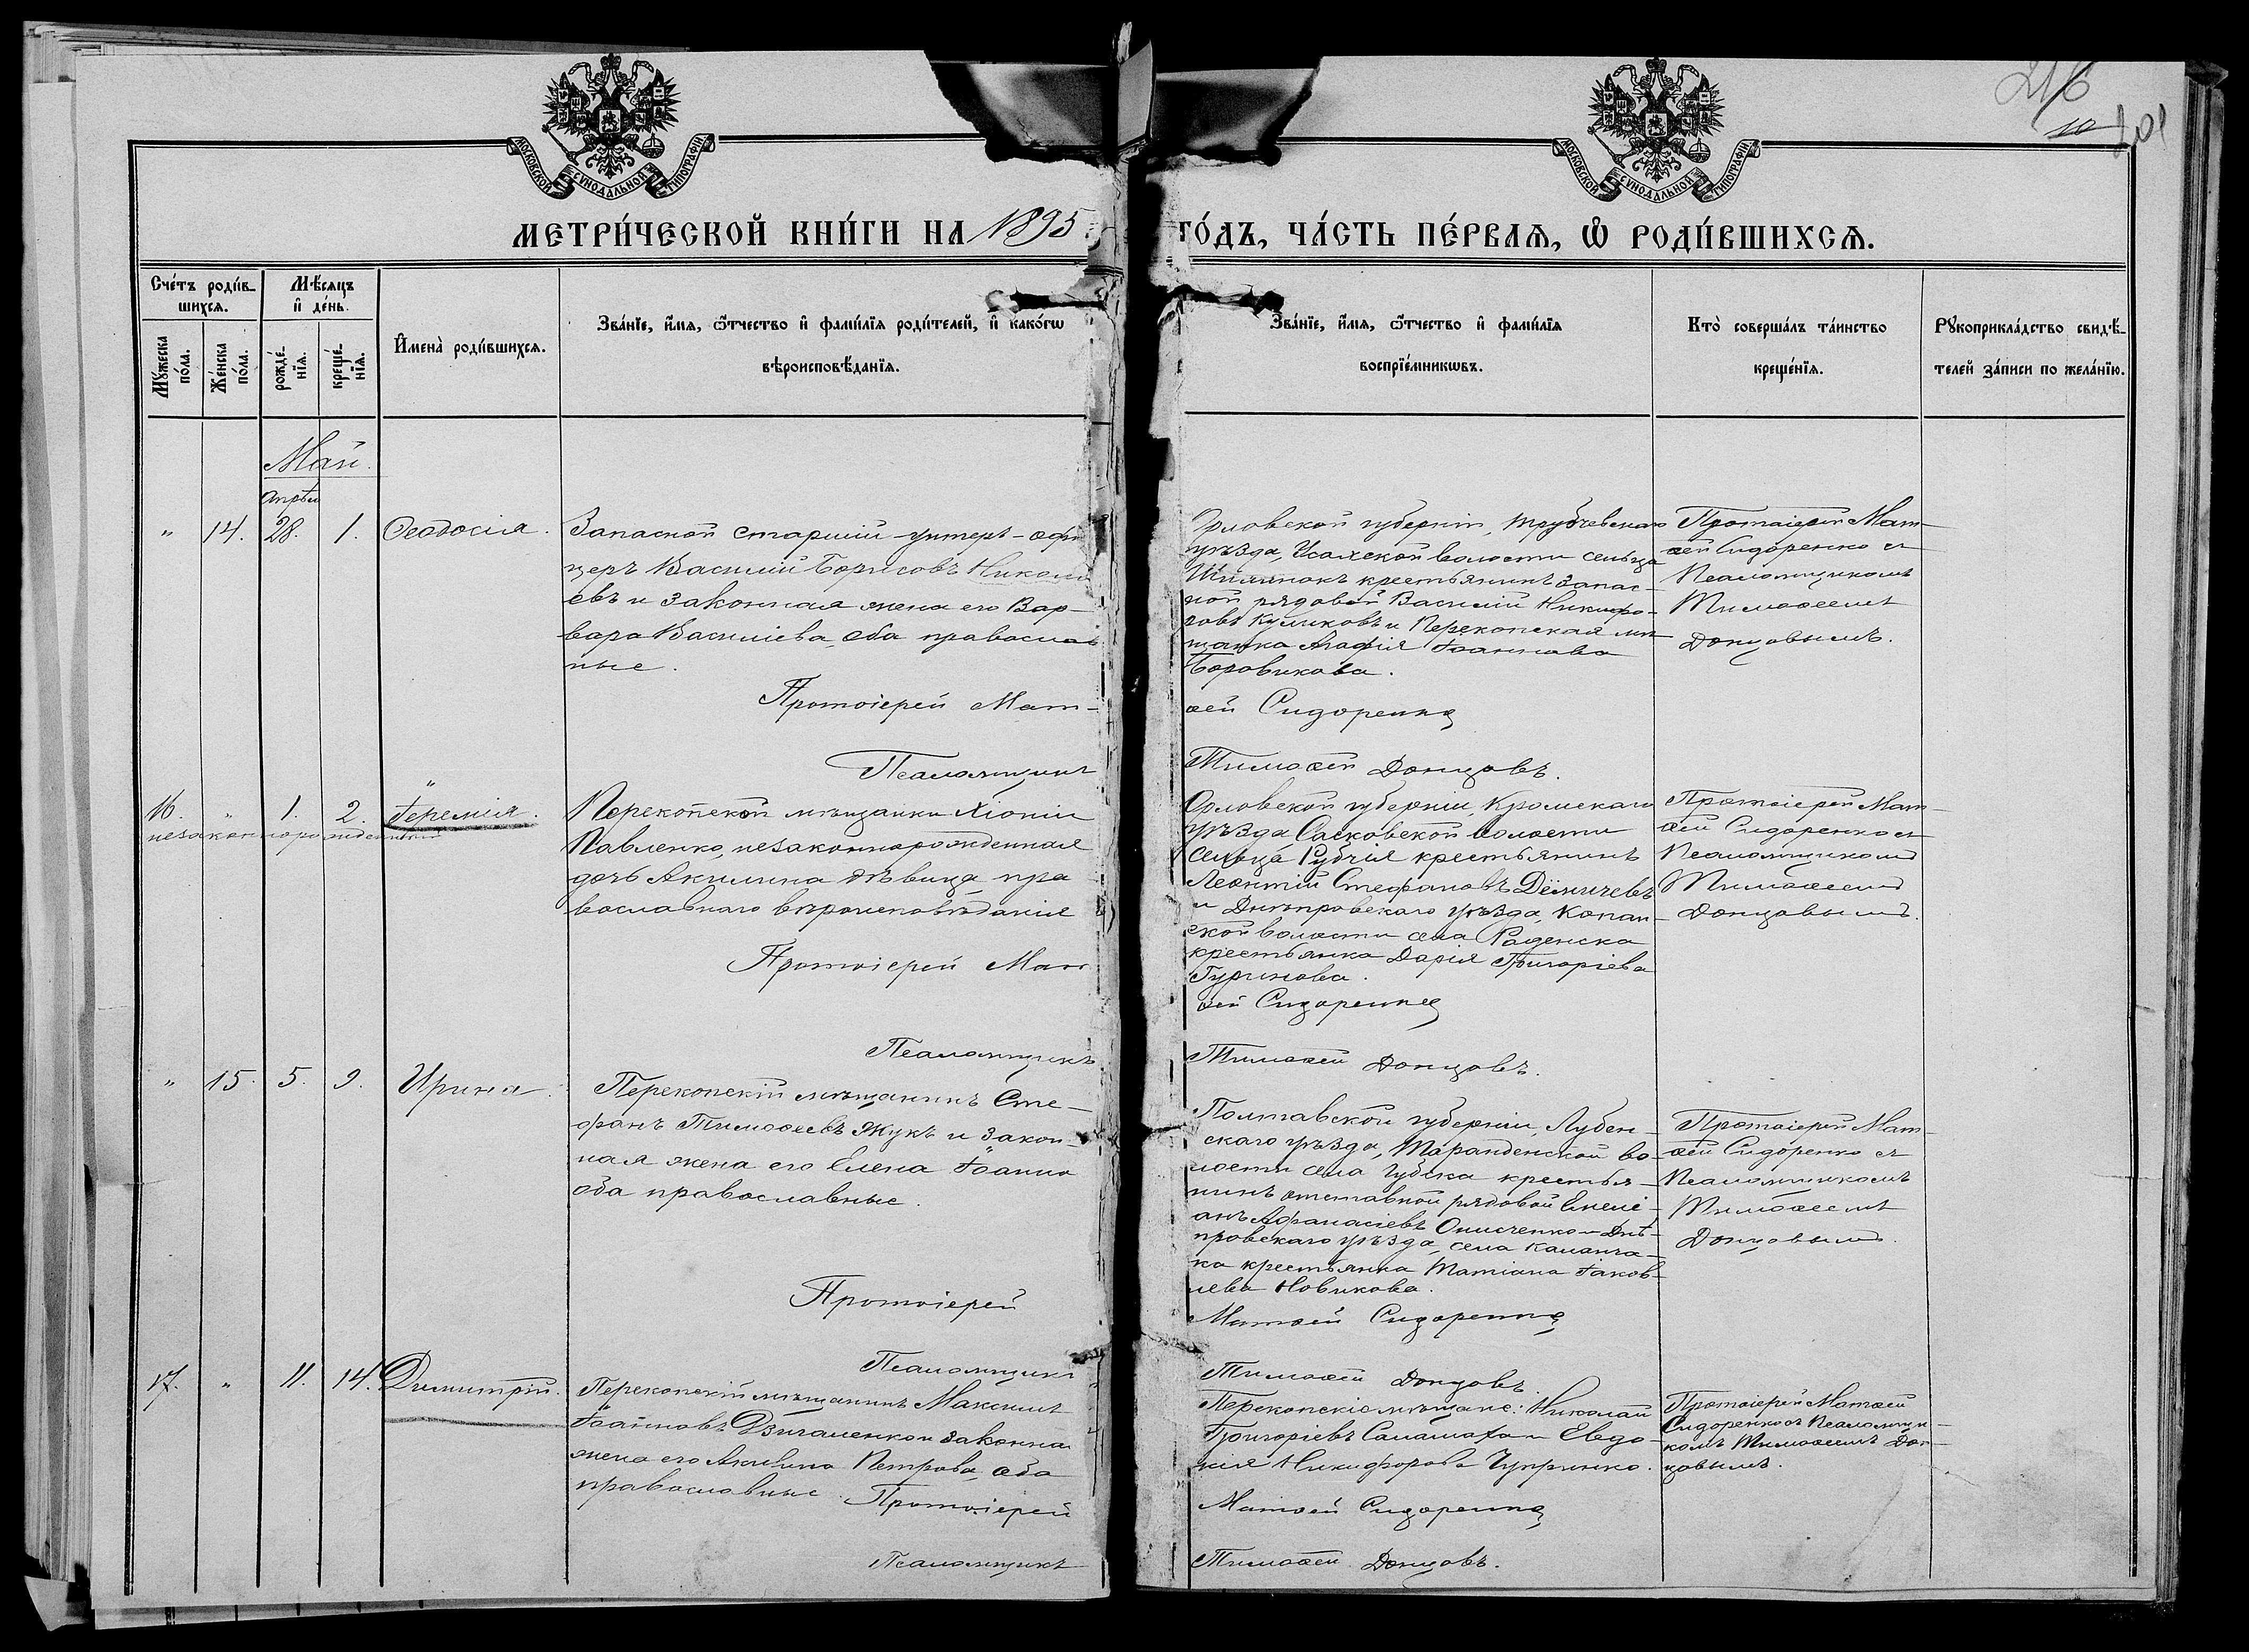 216
10
201
МОСКОВСКОЙ СѴНОДАЛЬНОЙ ТИПОГРАФІИ
МОСКОВСКОЙ СѴНОДАЛЬНОЙ ТИПОГРАФІИ
МЕТРИ́ЧЕСКОЙ КНИ́ГИ НА 1895 ГО́ДЪ, ЧА́СТЬ ПЕ́РВАѦ, Ѽ РОДИ́ВШИХСѦ.
Сче́тъ роди́в-
шихсѧ.
Мꙋ́жеска по́ла.
Же́нска по́ла.
Мѣ́сѧцъ
и҆ де́нь.
рожде́-
нїѧ.
креще́-
нїѧ.
И҆мена̀ роди́вшихсѧ.
Зва́нїе, и҆́мѧ, ѻ҆́тчество и҆ фами́лїѧ роди́телей, и҆ како́гѡ
вѣроисповѣ́данїѧ.
Зва́нїе, и҆́мѧ, ѻ҆́тчество и҆ фами́лїѧ
воспрїе́мникѡвъ.
Кто̀ соверша́лъ та́инство
креще́нїѧ.
Рꙋкоприкла́дство свидѣ́-
телей за́писи по жела́нїю.
Май.
апрѣл
„ 14. 28. 1. Ѳеодосія.
Запасной старшій унтеръ-офи
церъ Василій Борисовъ Никола
евъ и законная жена его Вар-
вара Василіева, оба православ
ные.
Протоіерей Мат-
Псаломщикъ
Орловской губерніи, Трубчевскаго
уѣзда, Усахской волости сельца
крестьянинъ запас-
ной рядовой Василій Никифо-
ровъ Куликовъ и Перекопская мѣ
щанка Агафія Іоаннова
Боровикова.
ѳей Сидоренко
Тимоѳей Донцовъ.
Протоіерей Мат-
ѳей Сидоренко съ
Псаломщикомъ
Тимоѳеемъ
Донцовымъ.
16. „ 1. 2. Іеремія.
незаконнорожденный
Перекопской мѣщанки Хіоніи
Павленко, незаконнорожденная
дочь Акилина дѣвица, пра
вославнаго вѣроисповѣданія
Протоіерей Мат
Псаломщикъ
Орловской губерніи, Кромскаго
уѣзда Сасковской волости
сельца Рубчія крестьянинъ
Леонтій Стефановъ Дёмичевъ
и Днѣпровскаго уѣзда, Копан-
ской волости села Раденска
крестьянка Дарія Григоріева
Гуринова.
ѳей Сидоренко
Тимоѳей Донцовъ.
Протоіерей Мат-
ѳей Сидоренко съ
Псаломщикомъ
Тимоѳеемъ
Донцовымъ.
„ 15. 5. 9. Ирина.
Перекопскій мѣщанинъ Сте-
фанъ Тимоѳеевъ Жукъ и закон-
ная жена его Елена Іоанно
оба православные.
Протоіерей
Псаломщикъ
Полтавской губерніи, Лубен-
скаго уѣзда, Тарандинской во-
лости села Губска крестья-
нинъ отставной рядовой Емелі-
анъ Афанасіевъ Онисченко и Днѣ-
провскаго уѣзда, села Каланча-
ка крестьянка Татіана Іаков-
лева Новикова.
Матѳей Сидоренко
Тимоѳей Донцовъ.
Протоіерей Мат-
ѳей Сидоренко съ
Псаломщикомъ
Тимоѳеемъ
Донцовымъ.
17. „ 11. 14. Димитрій.
Перекопскій мѣщанинъ Максимъ
Іоанновъ Дзигаленко и законна
жена его Акилина Петрова, оба
православные. Протоіерей
Псаломщикъ
Перекопскіе мѣщане: Николай
Григоріевъ Саламаха и Евдо-
кія Никифорова Чупринко.
Матѳей Сидоренко
Тимоѳей Донцовъ.
Протоіерей Матѳей
Сидоренко съ Псаломщи-
комъ Тимоѳеемъ Дон-
цовымъ.